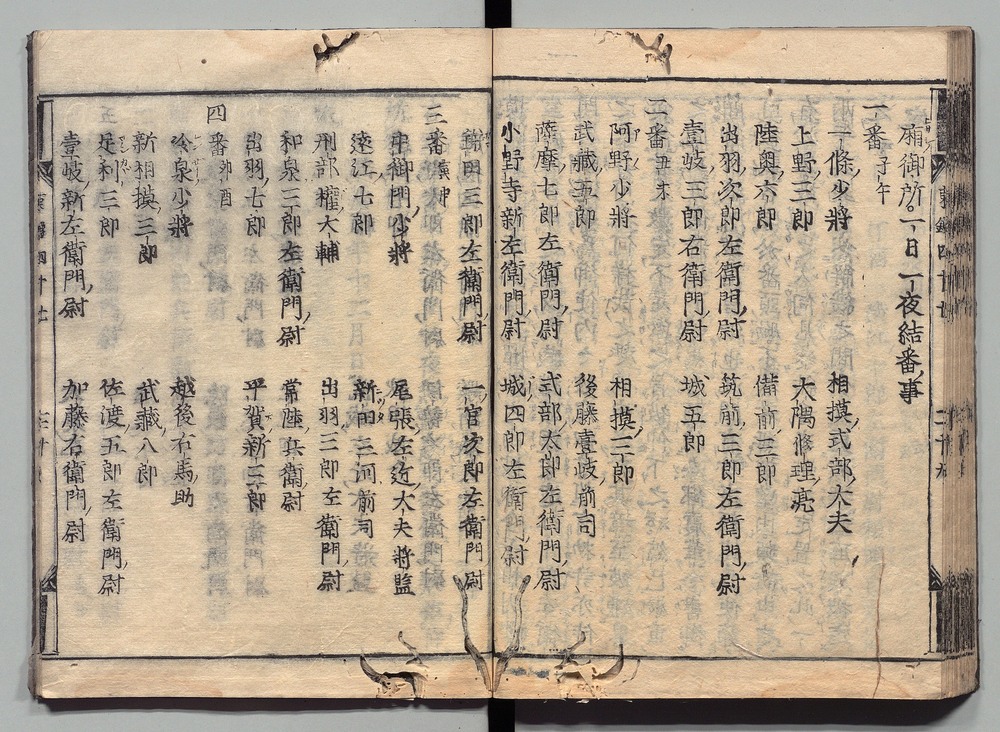 廂御所一日一夜結番事
一番 子午
一條少將 相摸式部大夫
上野三郎 大隅修理亮
陸奥六郎 備前三郎
出羽次郎左衞門尉 筑前三郎左衞門尉
壹岐三郎右衞門尉 城五郎
二番 丑未
阿野少將 相摸三郎
武藏五郎 後藤壹岐前司
薩摩七郎左衞門尉 式部太郎左衞門尉
小野寺新左衞門尉 城四郎左衞門尉
鎌田三郎左衞門尉 一宮次郎左衞門尉
三番 寅申
中御門少將 尾張左近大夫將監
遠江七郎 新田三河前司
刑部權大輔 出羽三郎左衞門尉
和泉三郎左衞門尉 常陸兵衞尉
出羽七郎 平賀新三郎
四番 卯酉
冷泉少將 越後右馬助
新相摸三郎 武藏八郎
足利三郎 佐渡五郎左衞門尉
壹岐新左衞門尉 加藤右衞門尉